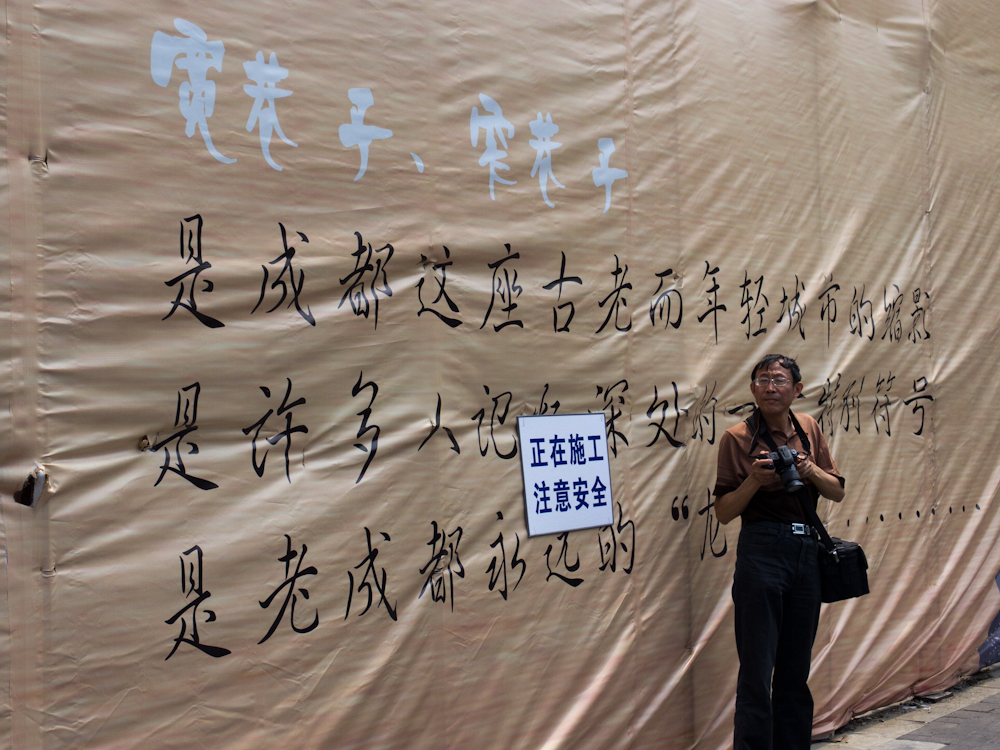 宽巷子、窄巷子
是成都这座古老而年轻城市的缩影
是许多人记忆深处的一 特别符号
是老成都永远的“龙 ………
正在施工
注意安全